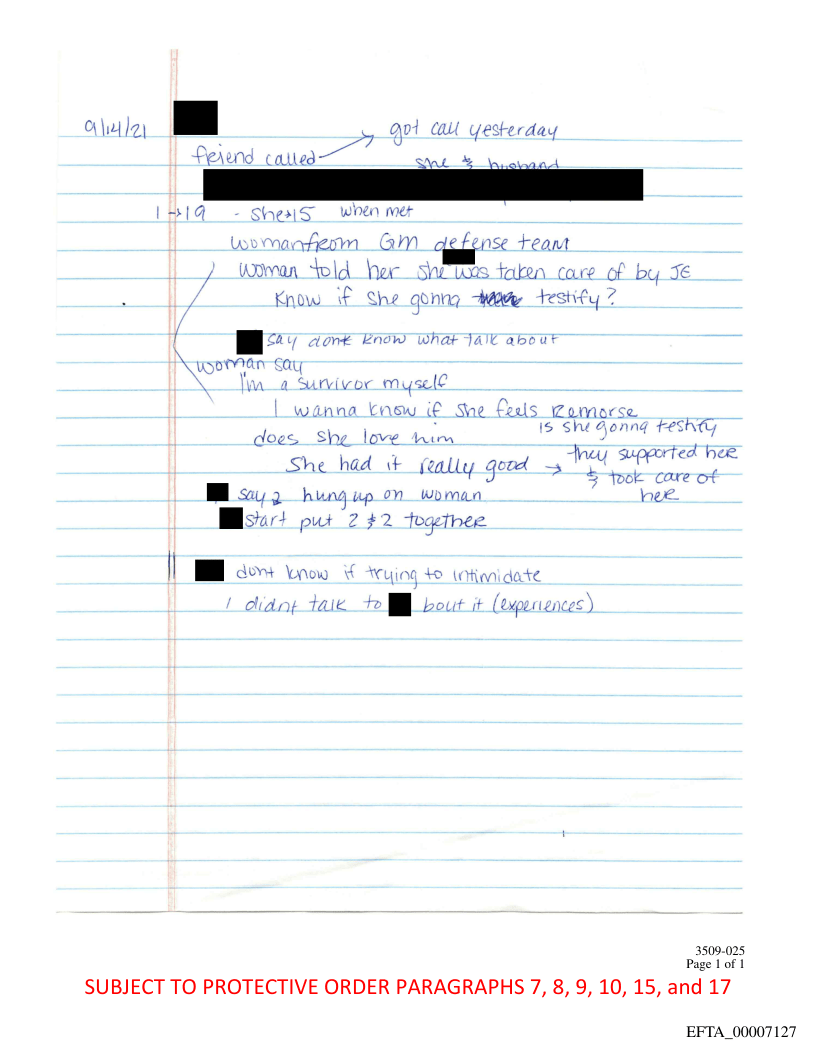 9/14/21
got call yesterday
friend called
she & husband
1 → 19 - she→15 when met
woman from GM defense team
woman told her she was taken care of by JE
know if she gonna testify?
say dont know what talk about
woman say
I'm a survivor myself
I wanna know if she feels remorse
is she gonna testify
does she love him
she had it really good → they supported her
& took care of
her
say & hung up on woman
start put 2 & 2 together
dont know if trying to intimidate
I didnt talk to bout it (experiences)
3509-025
Page 1 of 1
SUBJECT TO PROTECTIVE ORDER PARAGRAPHS 7, 8, 9, 10, 15, and 17
EFTA_00007127